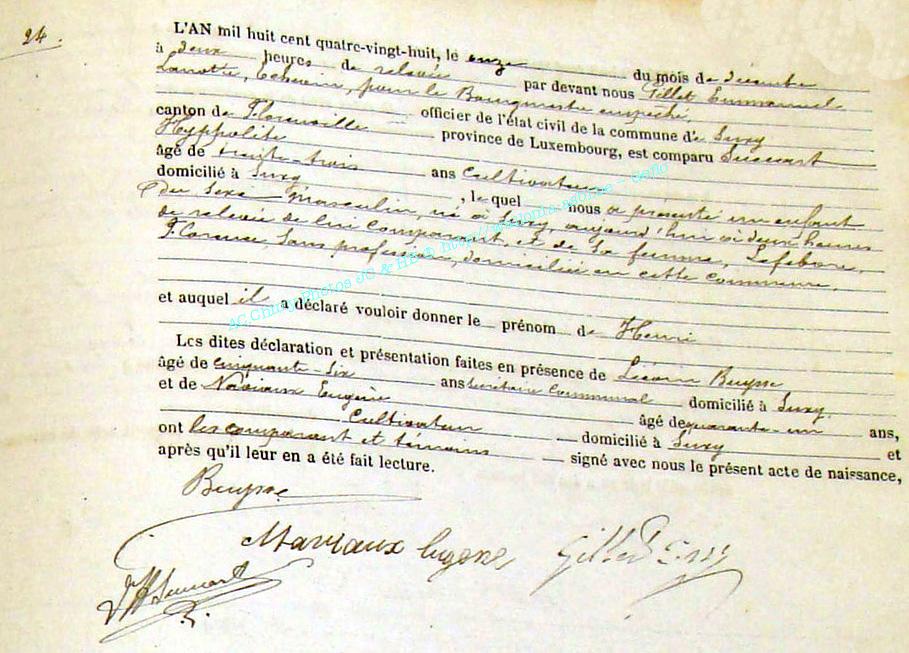 24.
L'AN mil huit cent quatre-vingt-huit, le onze du mois de décembre
à deux heures de relevée par devant nous Gillet, Emmanuel
Lamotte, Echevin, pour le Bourgmestre empêché,
officier de l'état civil de la commune de Suxy
canton de Florenville province de Luxembourg, est comparu
Hyppolite
âgé de trente-trois ans Cultivateur
domicilié à Suxy, le quel nous a présenté un enfant
du sexe masculin, né à Suxy, aujourd'hui à deux heures
de relevée de lui comparant, et de sa femme, Lefebvre,
Florence, sans profession, domiciliée en cette commune.
et auquel il a déclaré vouloir donner le prénom de Henri
Les dites déclaration et présentation faites en présence de Buysse,
âgé de cinquante-six ans secrétaire communal domicilié à Suxy,
et de Eugène
Cultivateur âgé de quarante-un ans,
domicilié à Suxy et
ont les comparant et témoins signé avec nous le présent acte de naissance,
après qu'il leur en a été fait lecture.
Buysse
AC Chiny Photos JC & HB © http://